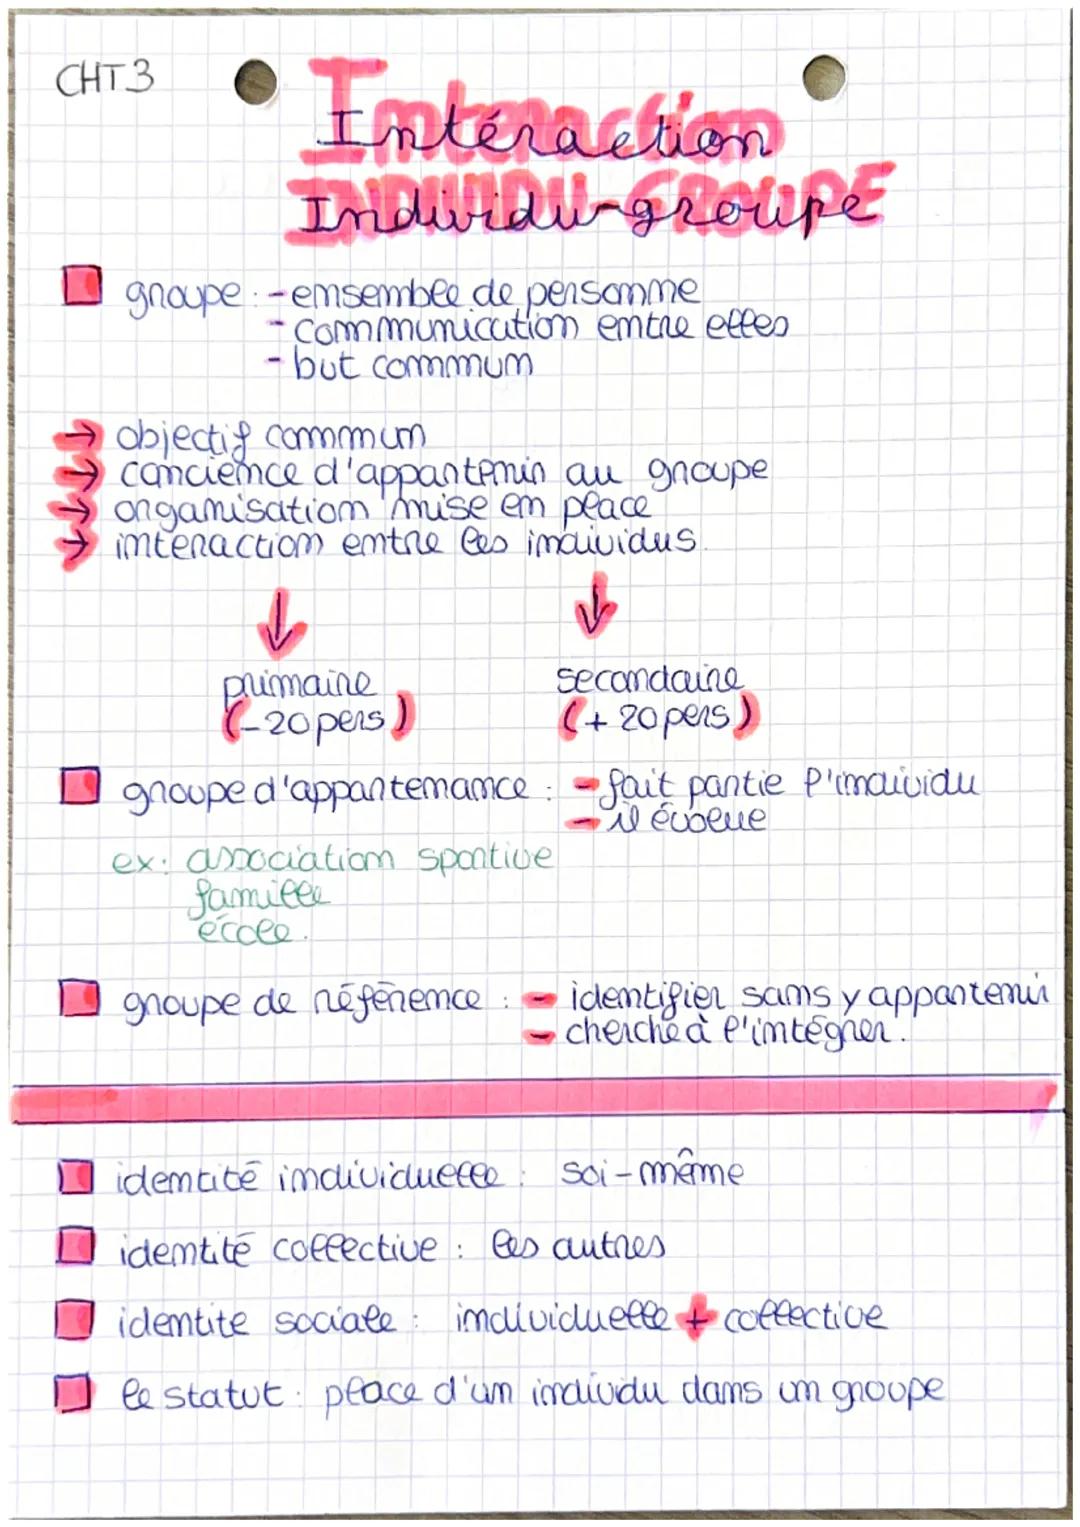 CHT.3
Intéraction
Individu-groupe
groupe : - ensemble de personne
- communication entre elles
- but commum
→ objectif commum
→ concience d'appartenir au groupe
→ organisation mise en place
→ interaction entre les individus.
↓ ↓
primaire secondaire
(-20 pers) (+ 20 pers)
groupe d'appartenance : - fait partie l'individu
- il évolue
ex: association sportive
famille
école.
groupe de référence : - identifier sans y appartenir
- cherche à l'intégrer.
identité individuelle : soi-même
identité collective : les autres
identite sociale : individuelle + collective
le statut : place d'un individu dans un groupe